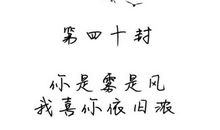 第四十封
你是雾是风
我喜你依旧浓